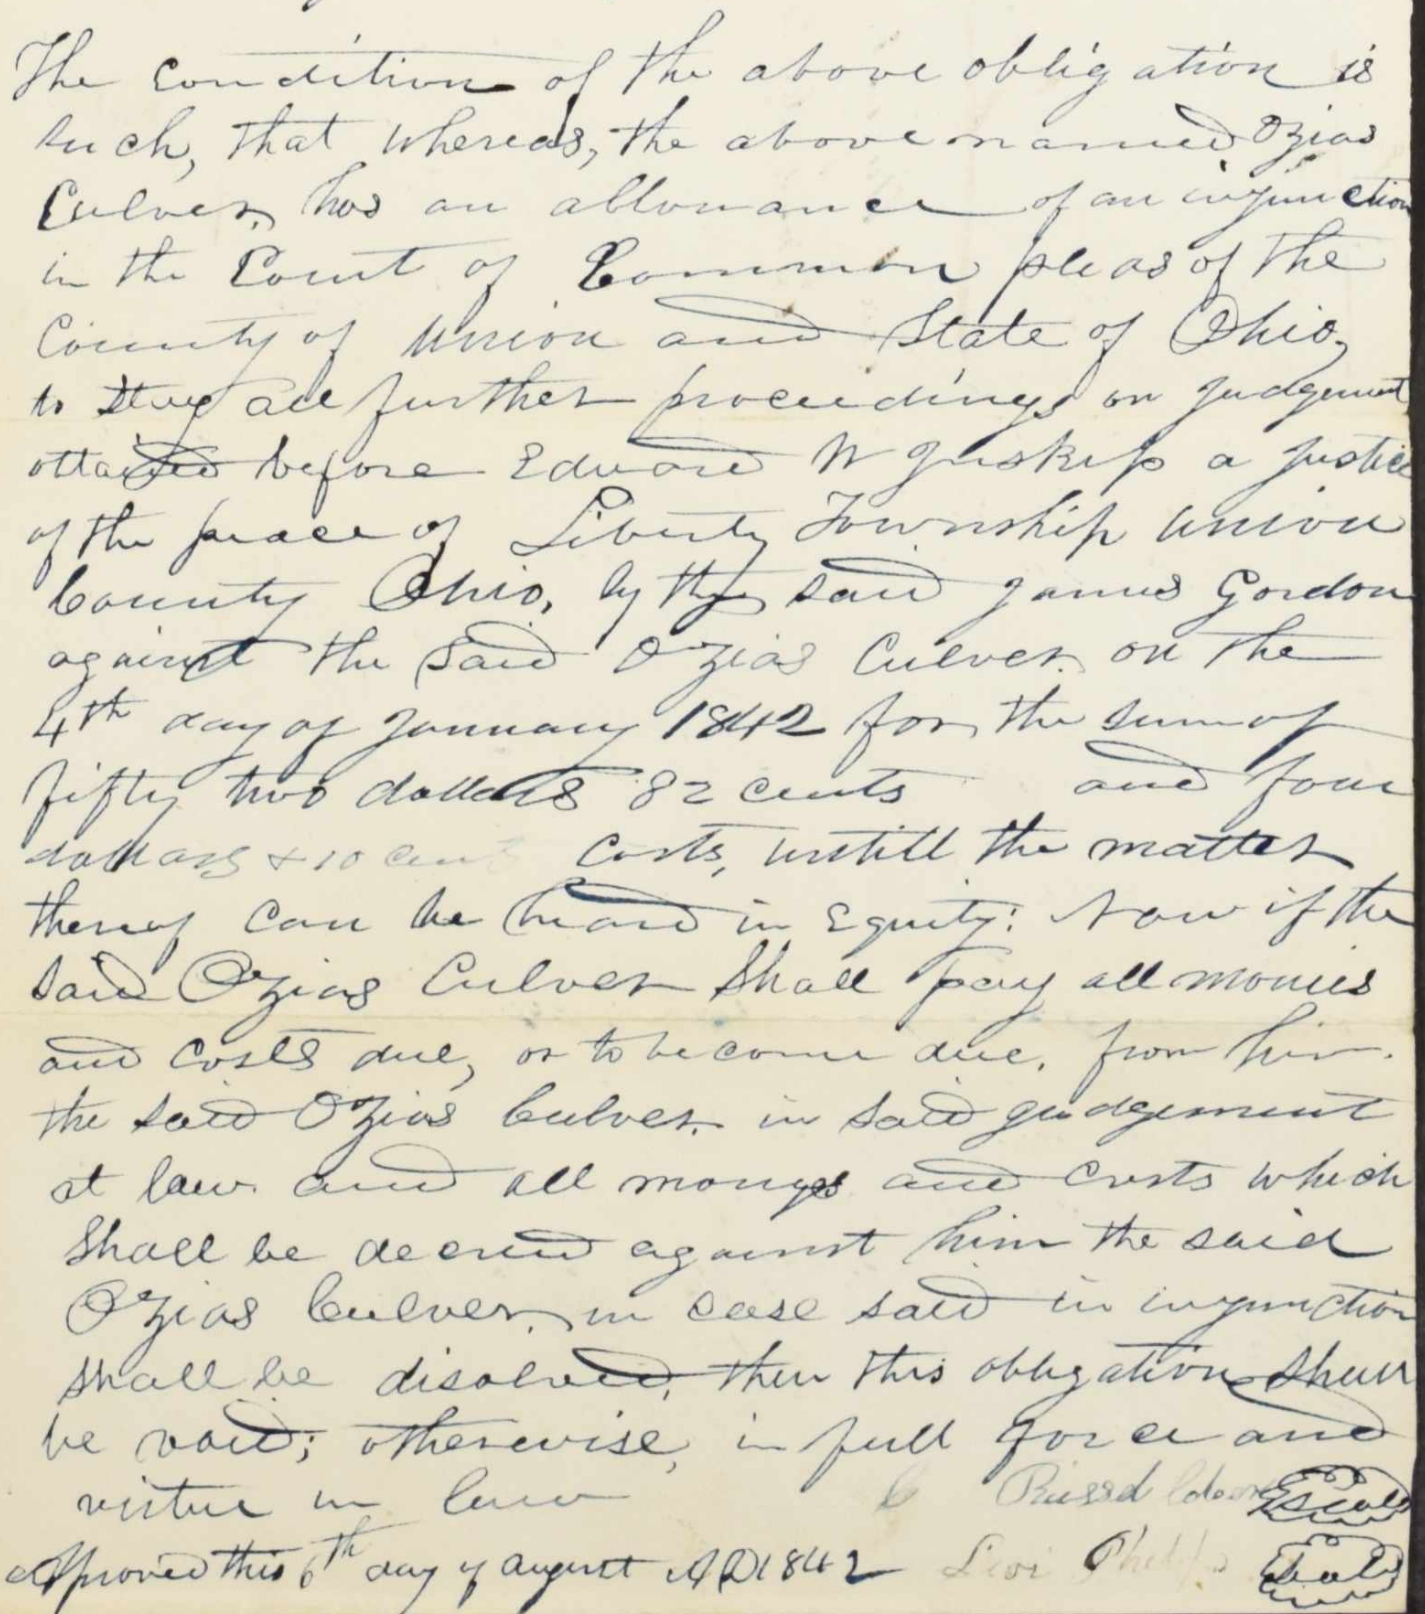 The Condition of the above obligation is
such, that whereas, the above named Ozias
Culver, has an allowance of an injunction
in the Court of Common pleas of the
County of Union and State of Ohio,
to stay all further proceedings on judgement
ottained before Edward W Inskip a justice
of the peace of Liberty Township Union
County Ohio, by the said James Gordon
against the said Ozias Culver on the
4th day of January 1842 for the sum of
fifty two dollars 82 cents and four
dollars & 10 cent costs, untill the matter
thereof can be heard in Equity: Now if the
said Ozias Culver shall pay all monies
and costs due, or to become due, from him.
the said Ozias Culver in said judgement
at law and all monyes and costs which
shall be decreed against him the said
Ozias Culver in case said in injunction
shall be disolved, then this obligation shall
be void; otherwise, in full force and
virtue in law
Russel Seal
Approved this 6th day of august AD 1842 Levi Phelps Seal